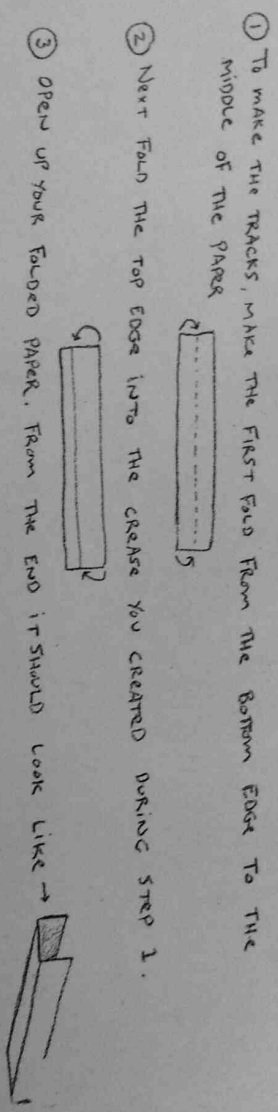 ① To MAKE THE TRACKS, MAKE THE FIRST FOLD FROM THE BOTTOM EDGE TO THE
MIDDLE OF THE PAPER
② NEXT FOLD THE TOP EDGE INTO THE CREASE YOU CREATED DURING STEP 1.
③ OPEN UP YOUR FOLDED PAPER. FROM THE END IT SHOULD LOOK LIKE →